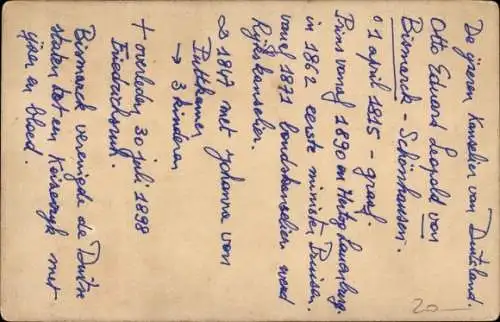 De ijzeren Kanselier van Duitsland.
Otto Eduard Leopold von
Bismarck - Schönhausen.
o 1 april 1815 - graaf.
Prins vanaf 1890 en Hertog Lauenburg.
in 1862 eerste minister Pruisen.
vanaf 1871 bondskanselier werd
Rijkskanselier.
∞ 1847 met Johanna von
Puttkamer
→ 3 kinderen
+ overleden 30 juli 1898
Friedrichsruh.
Bismarck verenigde de Duitse
staten tot een Keizerrijk met
ijzer en bloed.
20-